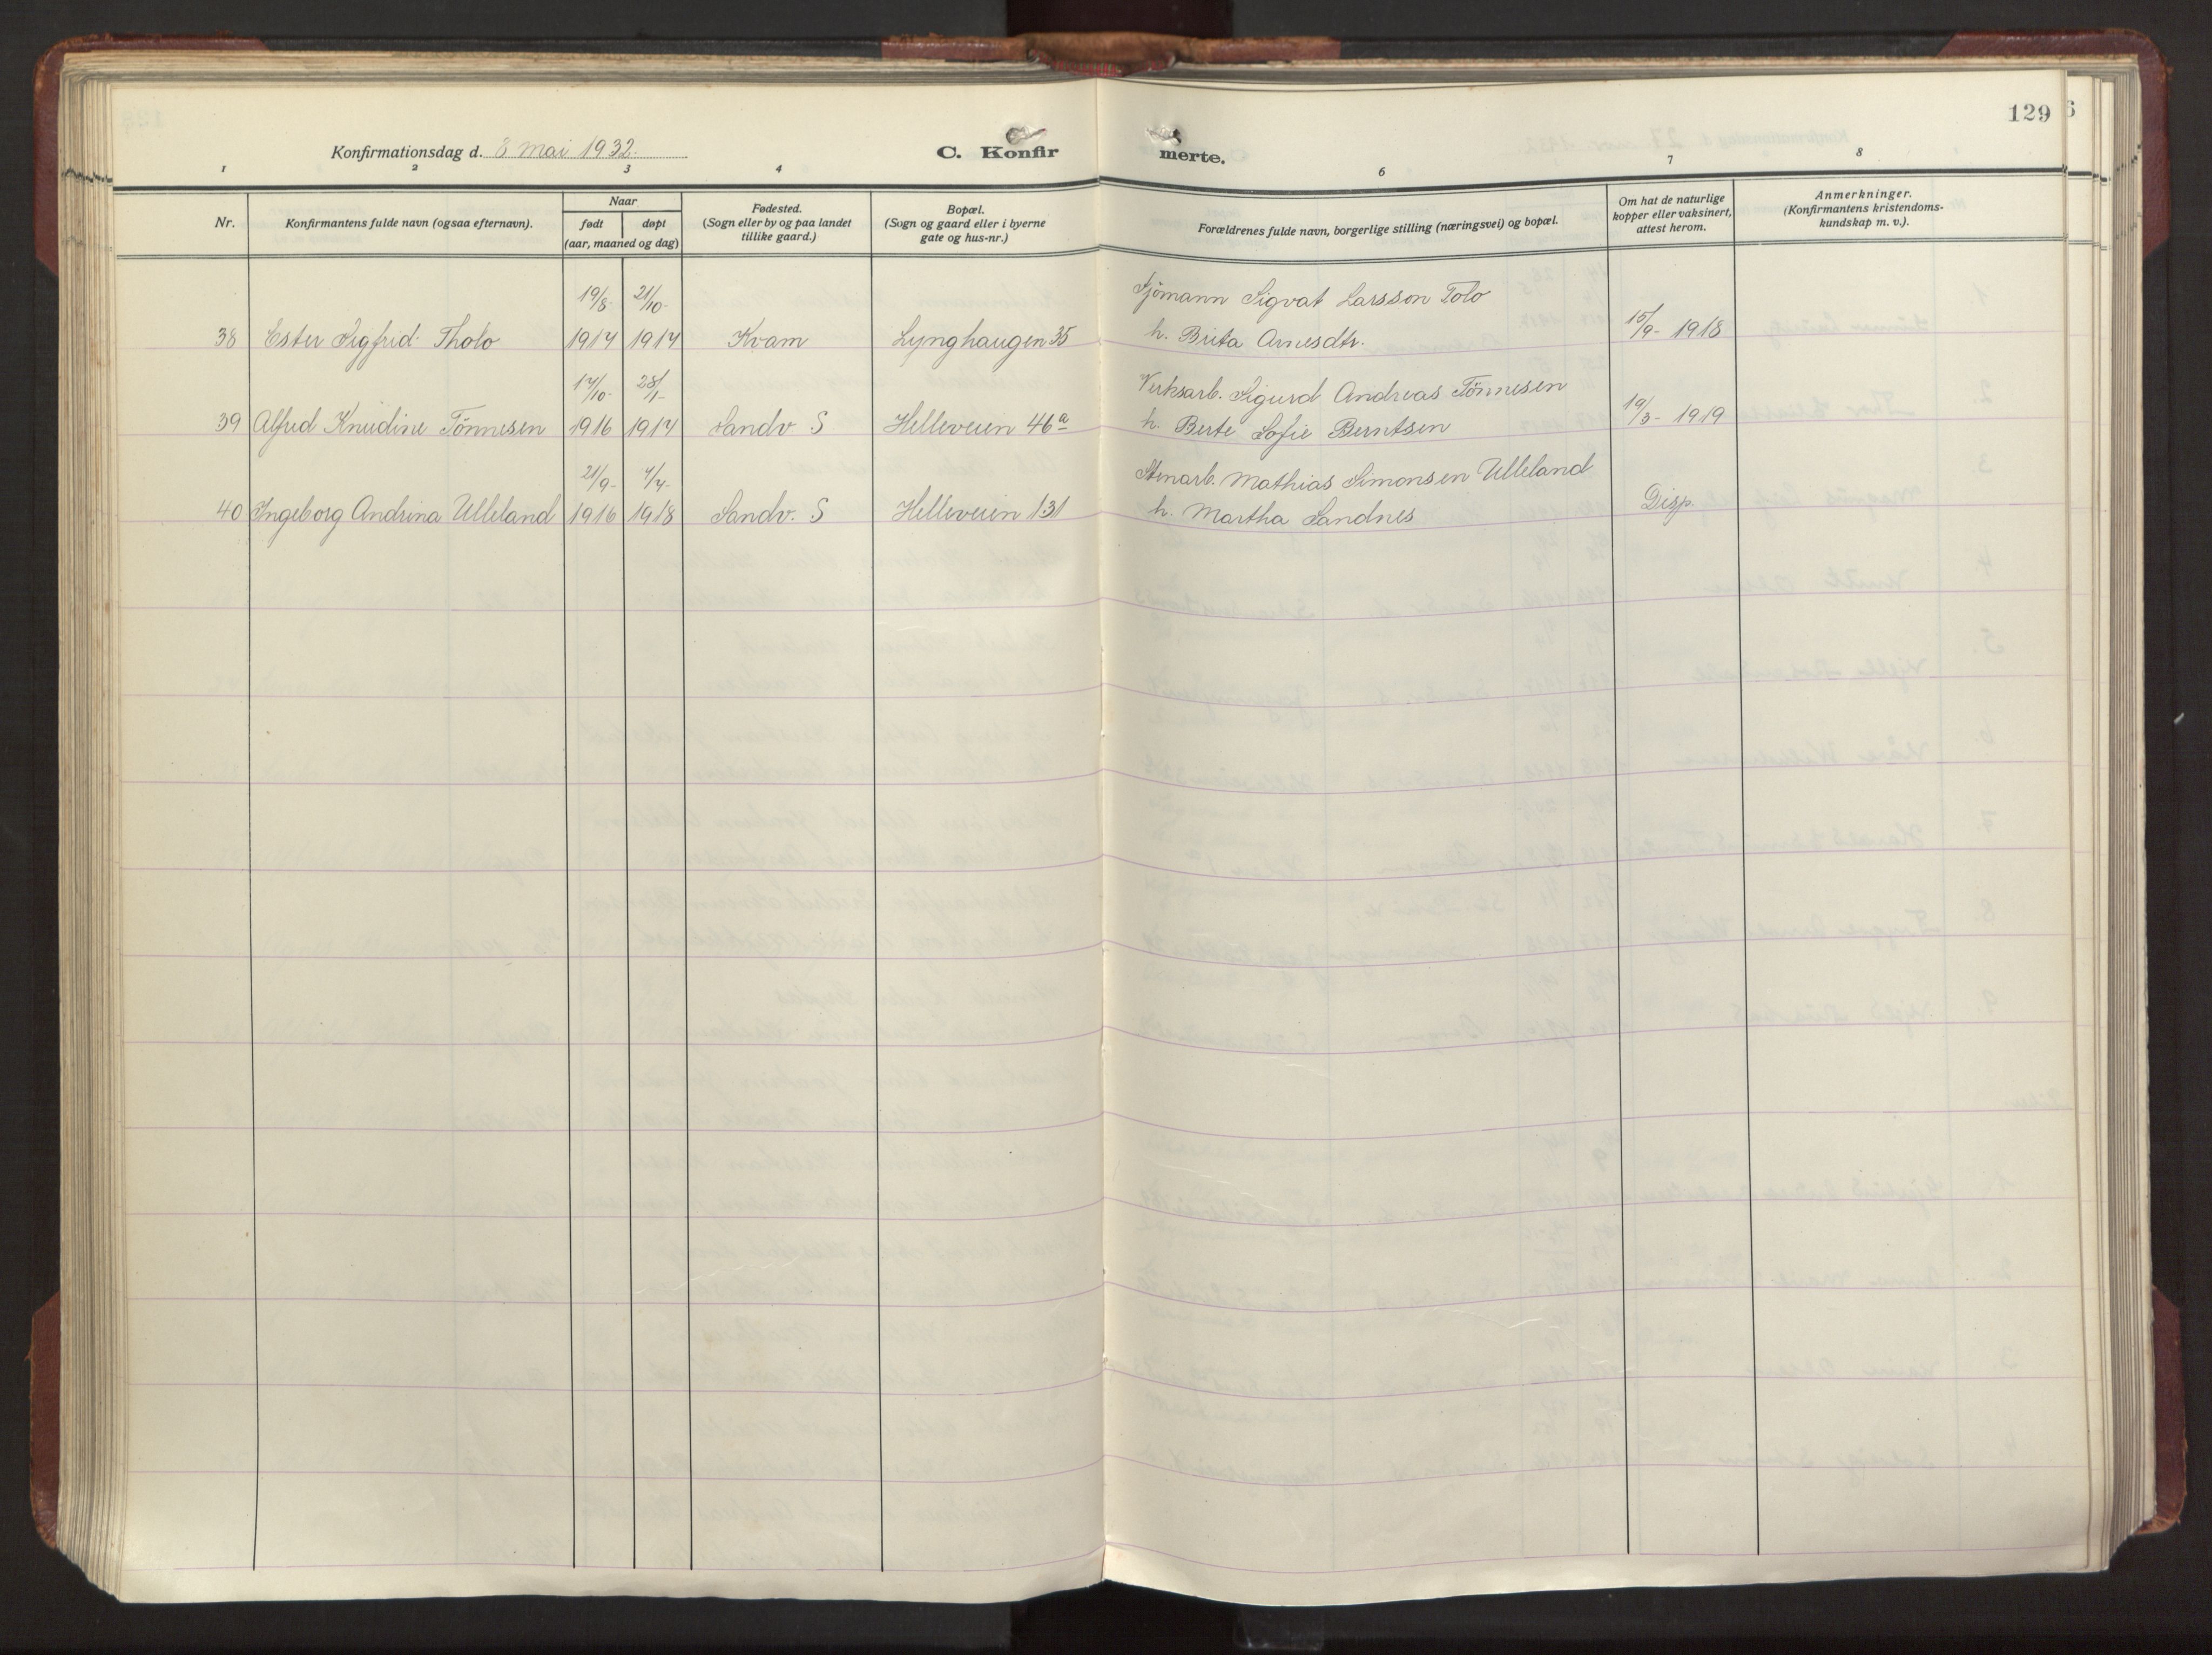 129
Konfirmationsdag d. 8 mai 1932.
C. Konfirmerte.
1 2 3 4 6 7 8
Nr.
Konfirmantens fulde navn (ogsaa efternavn).
Naar
født døpt
(aar, maaned og dag)
Fødested.
(Sogn eller by og paa landet
tillike gaard.)
Bopæl.
(Sogn og gaard eller i byerne
gate og hus-nr.)
Forældrenes fulde navn, borgerlige stilling (næringsvei) og bopæl.
Om hat de naturlige
kopper eller vaksinert,
attest herom.
Anmerkninger.
(Konfirmantens kristendoms-
kundskap m. v.).
19/8- 21/10- Sjömann Sigvat Larsson Tolo
38 Ester Sigfrid Tholo 1917 1917 Kvam Lynghaugen 35 h. Brita Arnesdtr. 15/9- 1918
17/10- 28/1- Verksarb. Sigurd Andreas Tönnesen
39 Alfred Knudine Tönnesen 1916 1917 Sandv S Helleveien 46a h. Berte Sofie Berntsen 19/3- 1919
21/9- 7/7- Stenarb. Mathias Simonsen Ulleland
40 Ingeborg Andrina Ulleland 1916 1918 Sandv. S Helleveien 131 h. Martha Sandnes Disp.